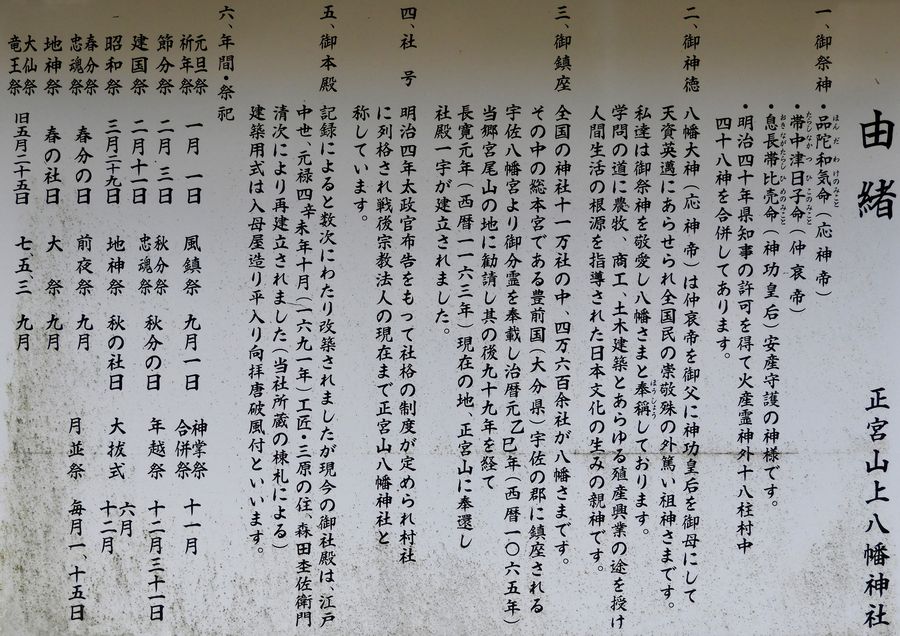 由緒
正宮山上八幡神社
一、御祭神
・品陀和気命(応神帝)
ほんだわけのみこと
・帯中津日子命(仲哀帝)
たらしなかつひこのみこと
・息長帯比売命(神功皇后)安産守護の神様です。
おきながたらしひめのみこと
・明治四十年県知事の許可を得て火産霊神外十八柱村中
四十八神を合併してあります。
二、御神徳
八幡大神(応神帝)は仲哀帝を御父に神功皇后を御母にして
天資英邁にあらせられ全国民の崇敬殊の外篤い祖神さまです。
私達は御祭神を敬愛し八幡さまと奉稱しております。
ほうしょう
学問の道に農牧、商工、土木建築とあらゆる殖産興業の途を授け
人間生活の根源を指導された日本文化の生みの親神です。
三、御鎮座
全国の神社十一万社の中、四万六百余社が八幡さまです。
その中の総本宮である豊前国(大分県)宇佐の郡に鎮座される
宇佐八幡宮より御分霊を奉載し治暦元乙巳年(西暦一〇六五年)
当郷宮尾山の地に勧請し其の後九十九年を経て
長寛元年(西暦一一六三年)現在の地、正宮山に奉還し
社殿一宇が建立されました。
四、社号
明治四年太政官布告をもって社格の制度が定められ村社
に列格され戦後宗教法人の現在まで正宮山八幡神社と
称しています。
五、御本殿
記録によると数次にわたり改築されましたが現今の御社殿は、江戸
中世、元禄四辛未年十月(一六九一年)工匠・三原の住、森田杢佐衛門
清次により再建立されました(当社所蔵の棟札による)
建築用式は入母屋造り平入り向拝唐破風付といいます。
六、年間・祭祀
元旦祭 一月一日 風鎮祭 九月一日 神掌祭
祈年祭 合併祭 十一月
節分祭 二月三日 秋分祭 秋分の日 年越祭 十二月三十一日
建国祭 二月十一日 忠魂祭
昭和祭 三月二十九日 地神祭 秋の社日 大抜式 六月
十二月
春分祭 春分の日 前夜祭 九月 月並祭 毎月一、十五日
忠魂祭
地神祭 春の社日 大祭 九月
大仙祭 旧五月二十五日 七、五、三 九月
竜王祭